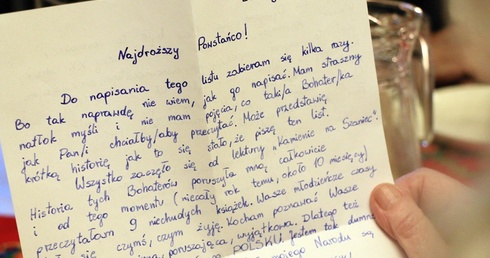 Najdroższy Powstańco!
Do napisania tego listu zabierałam się kilka razy.
Bo tak naprawdę nie wiem, jak go napisać. Mam straszny
natłok myśli i nie mam pojęcia, co taki/a Bohater/ka
jak Pan/i chciałby/aby przeczytać. Może przedstawię
krótką historię, jak to się stało, że piszę ten list.
Wszystko zaczęło się od lektury „Kamienie na Szaniec".
Historia tych Bohaterów poruszyła mnie całkowicie
i od tego momentu (niecały rok temu, około 10 miesięcy)
przeczytałam 9 niechudych książek. Wasze młodzieńcze czasy
się czymś, czym żyję. Kocham poznawać Wasze
poruszająca, wyjątkowa. Dlatego też
POLSKU jestem tak dumna
mojego Narodu są